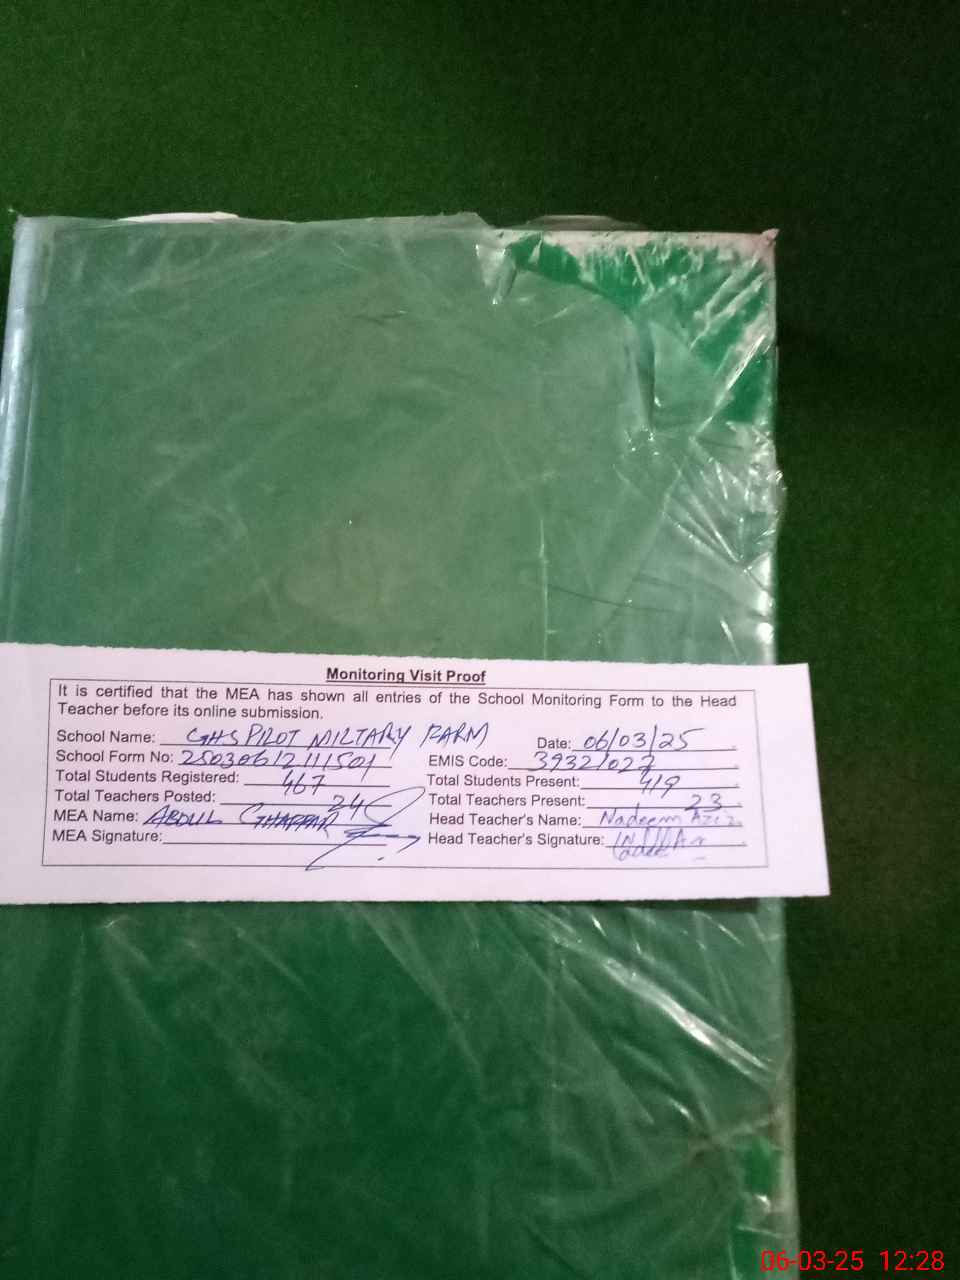 Monitoring Visit Proof
It is certified that the MEA has shown all entries of the School Monitoring Form to the Head
Teacher before its online submission.
School Name: GHS PILOT MILTARY FARM Date: 06/03/25
School Form No: 25030612111501 EMIS Code: 39321027
Total Students Registered: 467 Total Students Present: 419
Total Teachers Posted: 24 Total Teachers Present: 23
MEA Name: ABDUL GHAFFAR Head Teacher's Name: Nadeem Aziz
MEA Signature: Head Teacher's Signature:
06-03-25 12:28